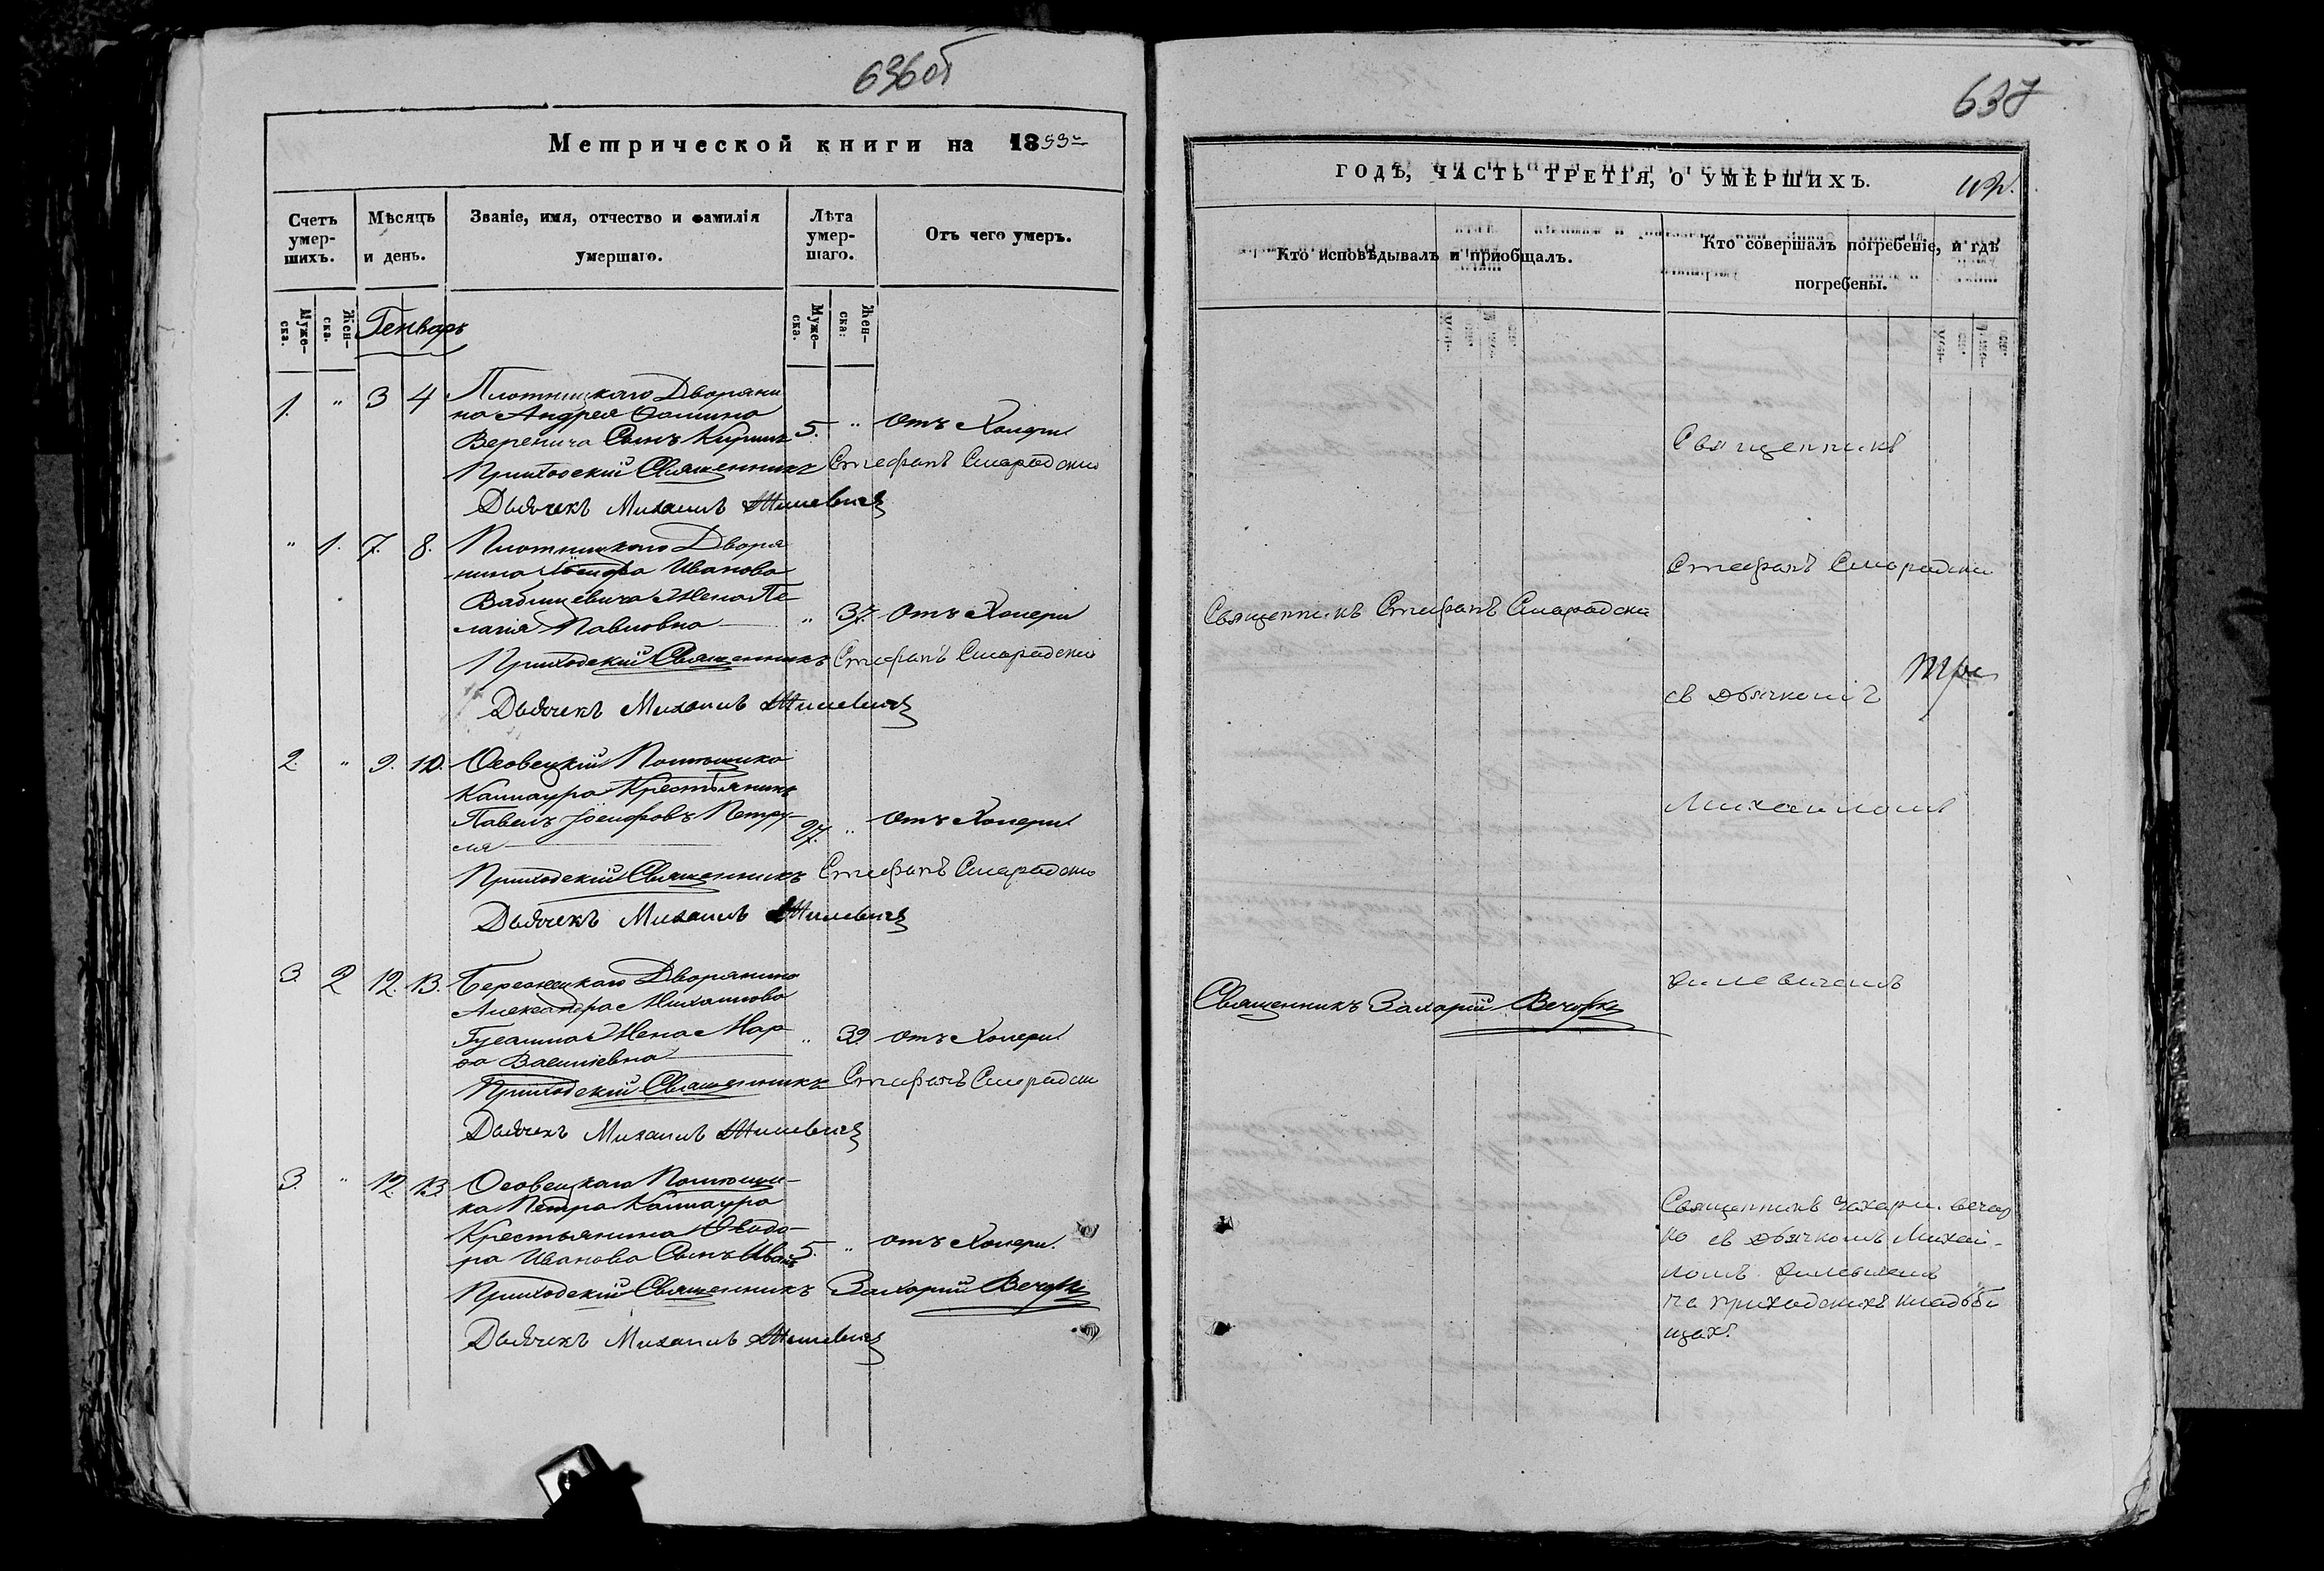 636об
Метрической книги на 1853
Счетъ умер-шихъ.
Мѣсяцъ и день.
Званіе, имя, отчество и фамилія умершаго.
Лѣта умер-шаго.
Отъ чего умеръ.
Муже-ска.
Жен-ска.
Генварь
Муже-ска.
Жен-ска.
1. " 3 4 Плотницкаго Дворяни
на Андрея Фомина
Веренича Сынъ 5. " отъ Холеры
Приходскій Священникъ Стефанъ Смарадски
Дьячекъ Михаилъ Жилевичъ
" 1. 7. 8. Плотницкаго Дворя
нина Іосифа Иванова
Жена Пе
лагія Павловна " 37. отъ Холеры
Приходскій Священникъ Стефанъ Смарадски
Дьячекъ Михаилъ Жилевичъ
2. " 9. 10. Осовецкій Помѣщика
Крестьянинъ
Павелъ Іосифовъ Петру-
ля 27. " отъ Холеры
Приходскій Священникъ Стефанъ Смарадски
Дьячекъ Михаилъ Жилевичъ
3. 2 12. 13. Дворянина
Александра Михаилова
Жена Мар
фа Васильевна " 32. отъ Холеры
Приходскій Священникъ Стефанъ Смарадски
Дьячекъ Михаилъ Жилевичъ
3. " 12. 13. Осовецкаго Помѣщи-
ка Петра
Крестьянина Ѳеодо-
ра Иванова Сынъ Иванъ 5. " отъ Холеры.
Приходскій Священникъ Захарій Вечорко
Дьячекъ Михаилъ Жилевичъ
637
ГОДѢ, ЧАСТЬ ТРЕТІЯ, О УМЕРШИХЪ.
Кто исповѣдывалъ и пріобщалъ.
Кто совершалъ погребеніе, и гдѣ
погребены.
Священникъ
Стефанъ Смарадски
Священникъ Стефанъ Смарадски
съ дьячкомъ
Михаиломъ
Жилевичемъ
Священникъ Захарій Вечорко
Священникъ Захари. вечор
ко съ дьячкомъ Михаи-
ломъ Жилевичемъ
на приходскихъ кладби
щах.